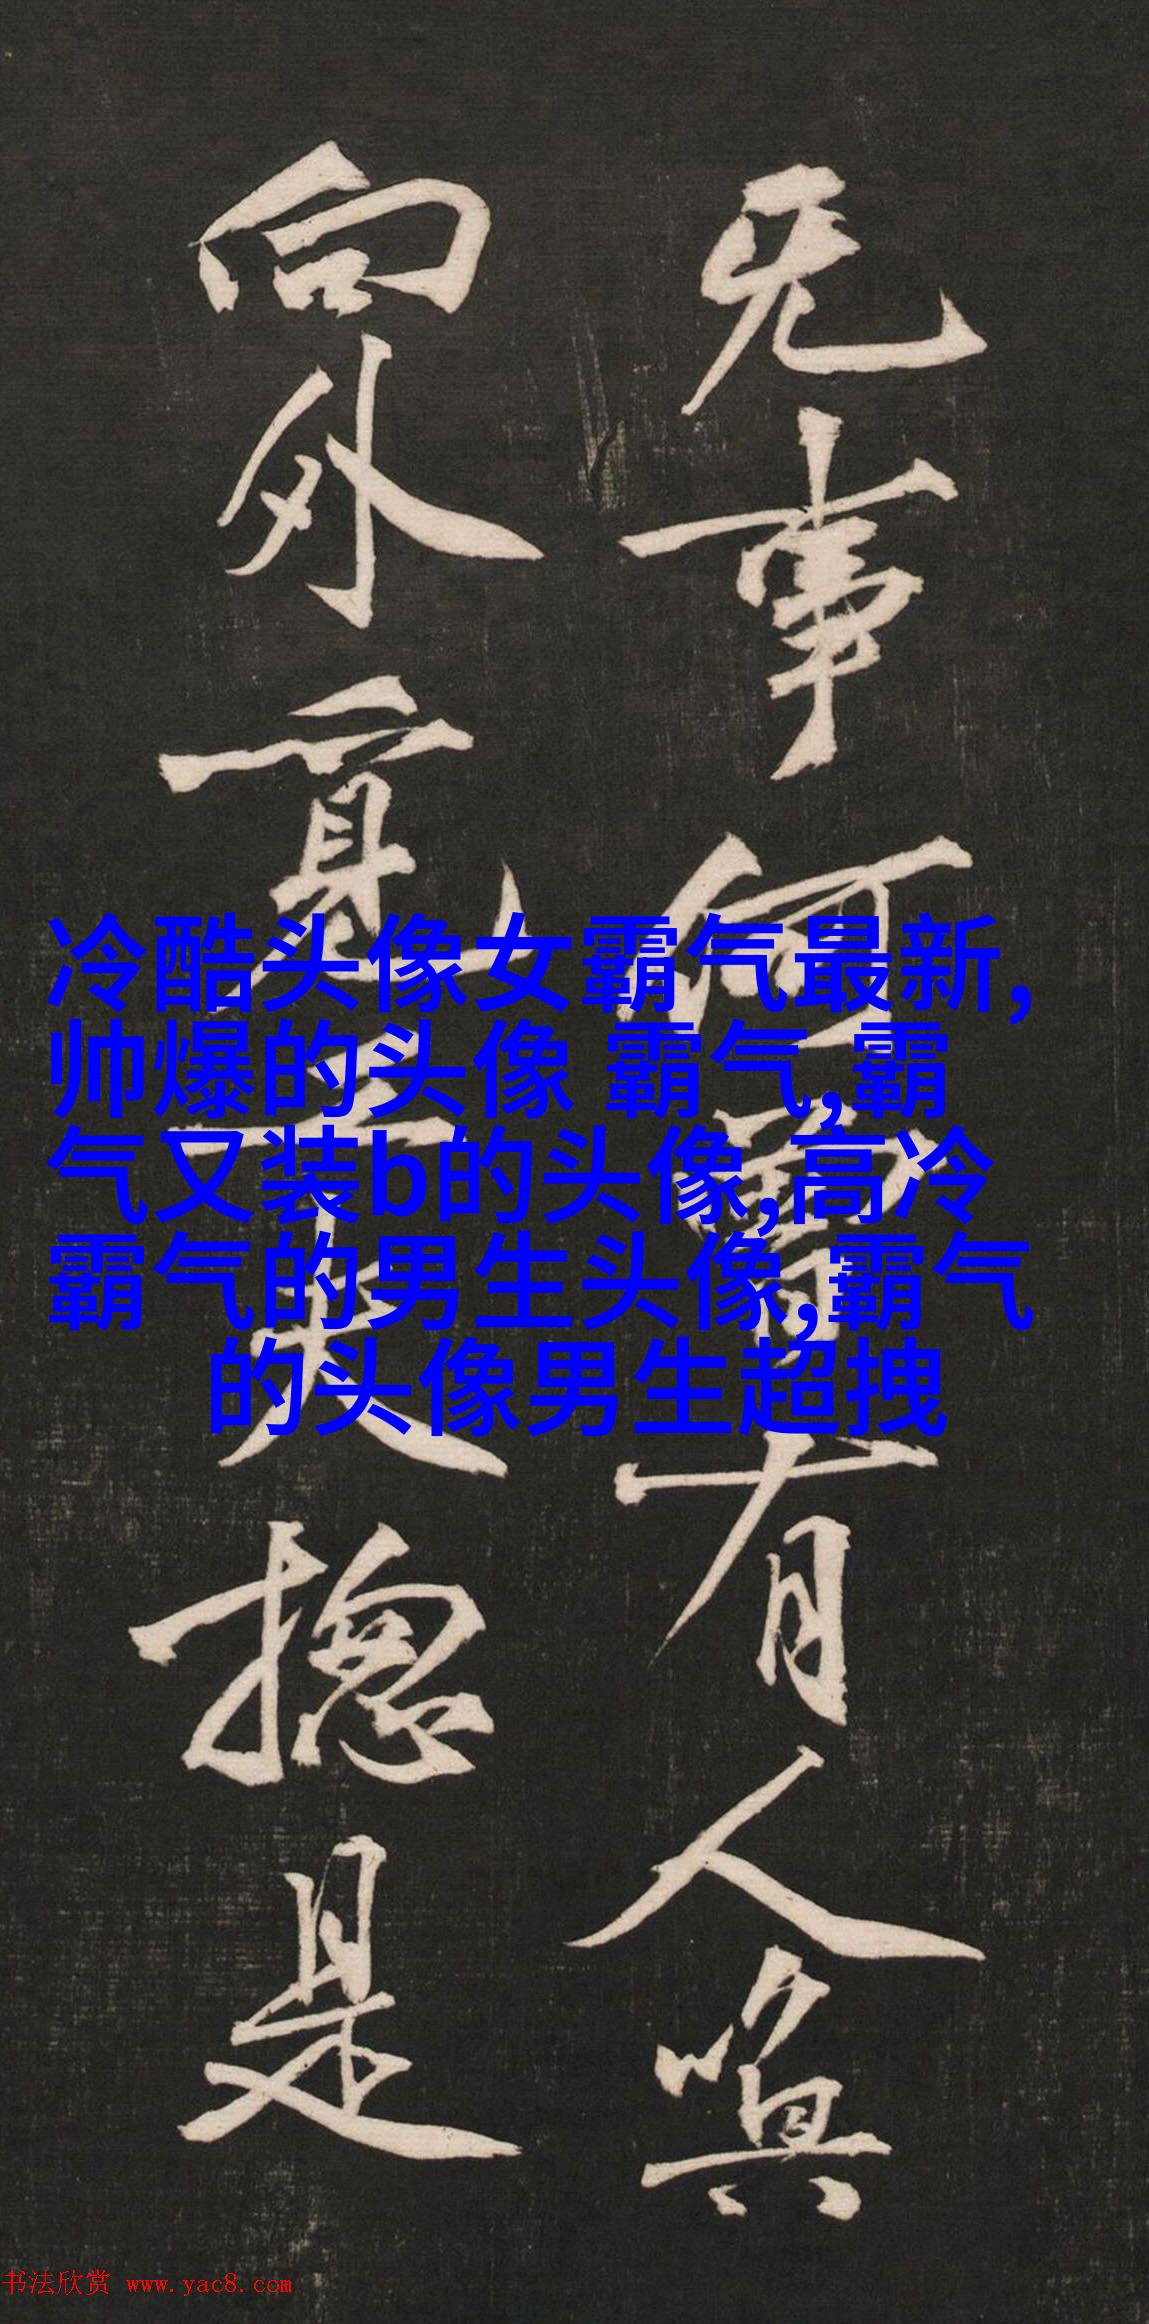 无事何曾有人
向外覔工夫揔是
冷酷头像女霸气最新,
帅爆的头像 霸气,霸
气又装b的头像,高冷
霸气的男生头像,霸气
的头像男生超拽
书法欣赏 www.yac8.com